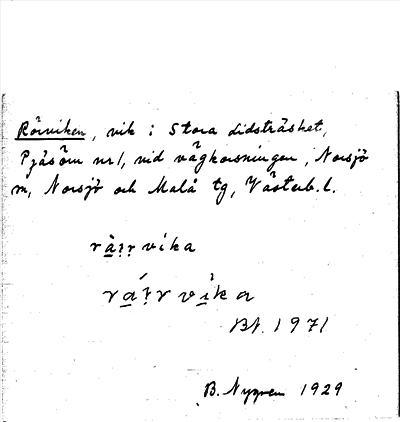 Rörviken, vik i Stora Lidsträsket,
Pjäsörn nr 1, vid vägkorsningen, Norsjö
sn, Norsjö och Malå tg, Västerb. l.
vika
vika
BN. 1971
B. Nygren 1929